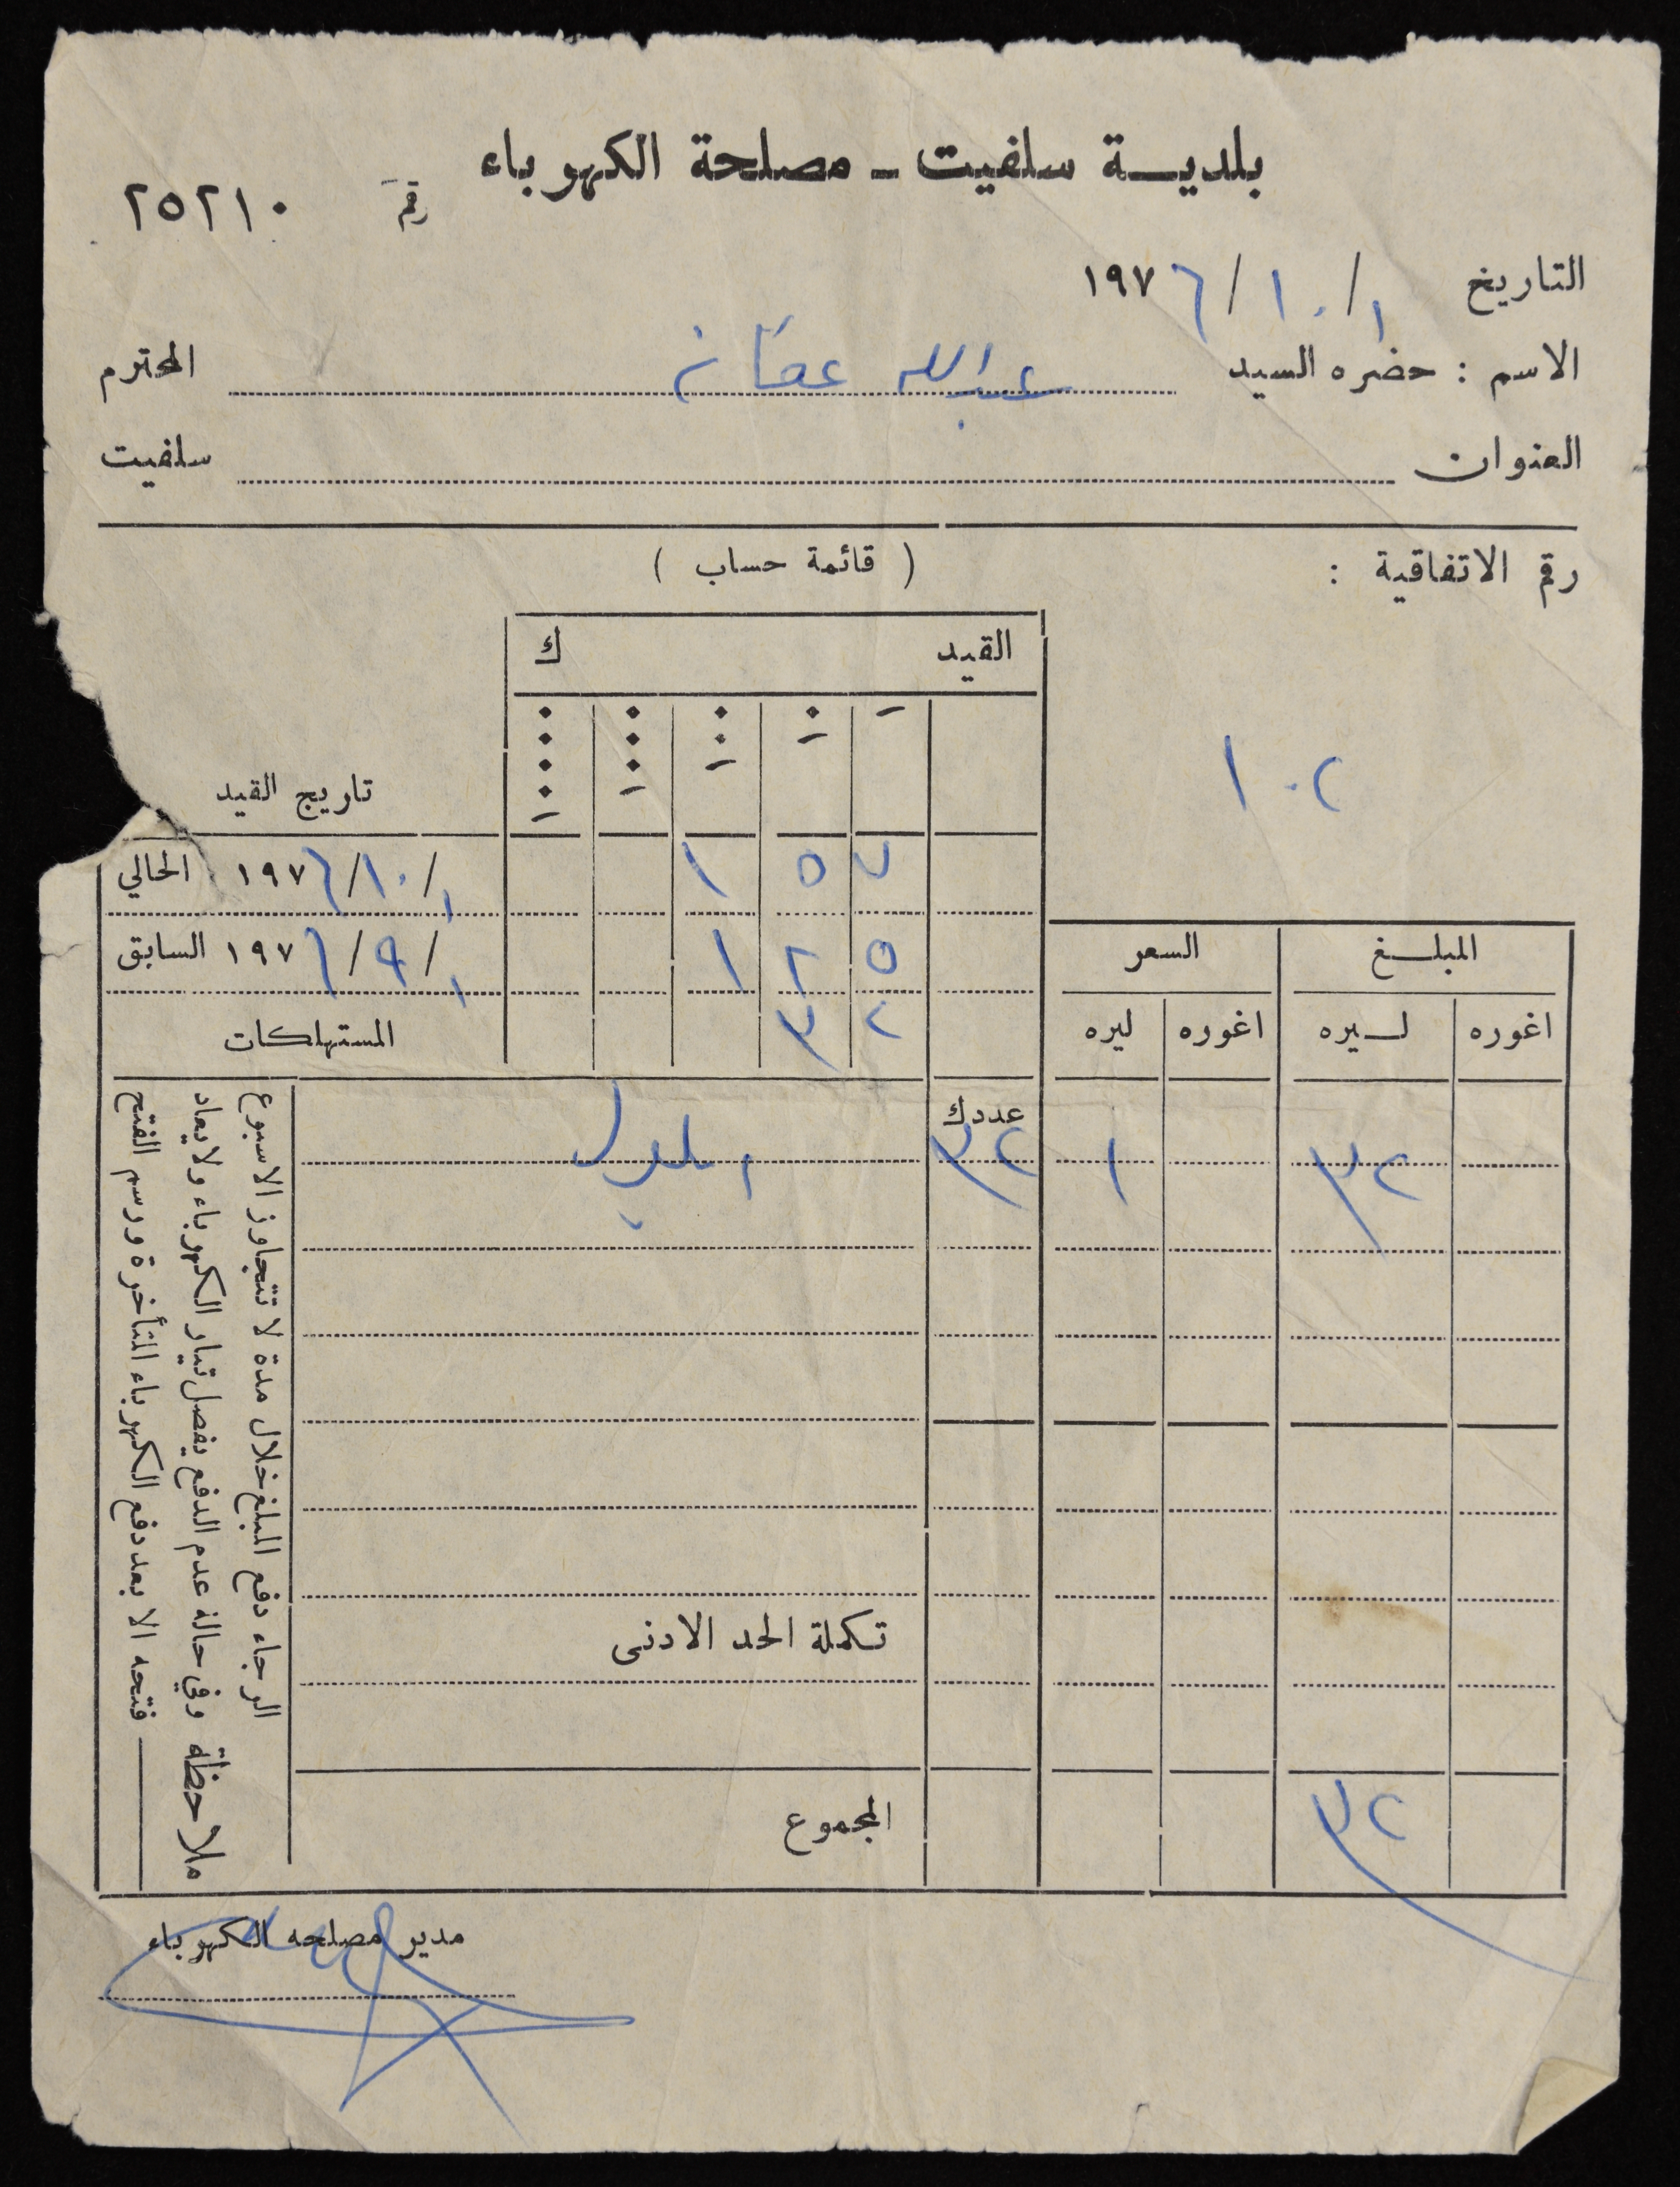 بلديـــة سلفيت ـ مصلحة الكهرباء
رقم ٢٥٢١٠
التاريخ ١/١٠/١٩٧٦
الاسم : حضره السيد عبدالله عفانه المحترم
العنوان سلفيت
رقم الاتفاقية :
( قائمة حساب )
١٠٢
القيد ك
تاريج القيد
١ ٥ ٧ ١/١٠/١٩٧٦ الحالي
١ ٢ ٥ ١/٩/١٩٧٦ السابق
٣ ٢ المستهلكات
المبلـــغ السعر
اغوره لـــيره اغوره ليره
عدد ك
٣٢ ١ ٣٢ ايلول
تـكملة الحد الادنى
المجموع
٣٢
ملاحظة
الرجاء دفع المبلغ خلال مدة لا تتجاوز الاسبوع
وفي حالة عدم الدفع يفصل تيار الكهرباء ولا يعاد
فتحه الا بعد دفع الكهرباء المتأخرة ورسم الفتح
مدير مصلحه الكهرباء